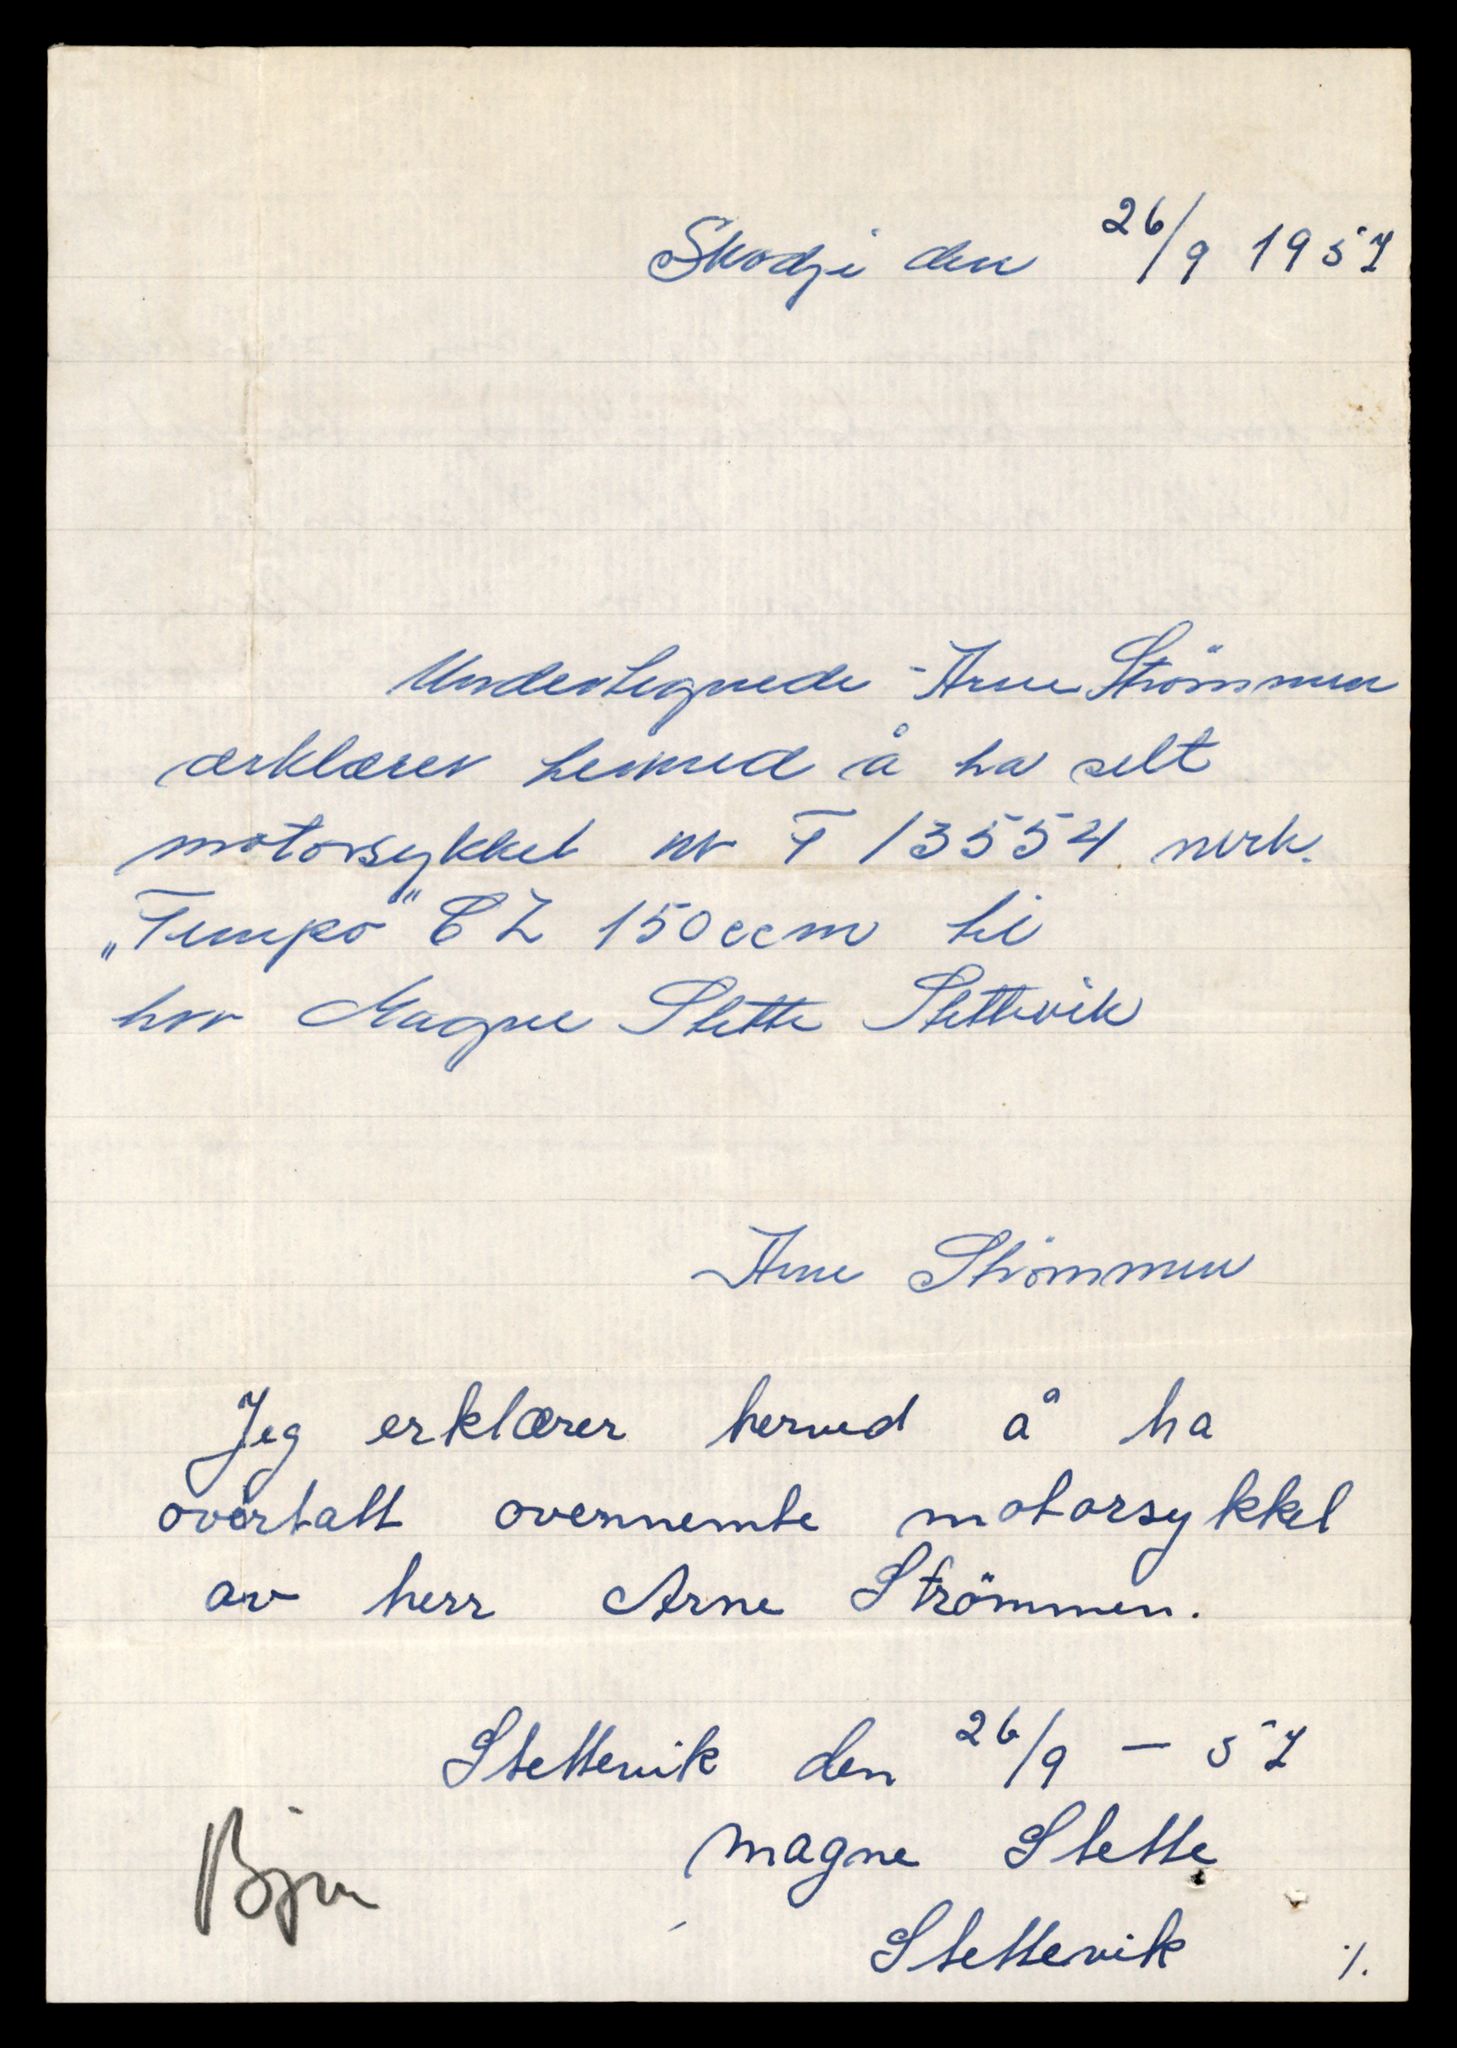 Skodje den 26/9 1957
Undertegnede Arne Strömmen
ærklærer hermed å ha selt
motorsykkel nr F 13554 merk.
„Tempo" CZ 150 ccm til
herr Magne Stette Stettevik
Arne Strömmen
Jeg erklærer herved å ha
overtatt ovennemte motorsykkel
av herr Arne Strömmen.
Stettevik den 26/9 – 57
Magne Stette
Stettevik